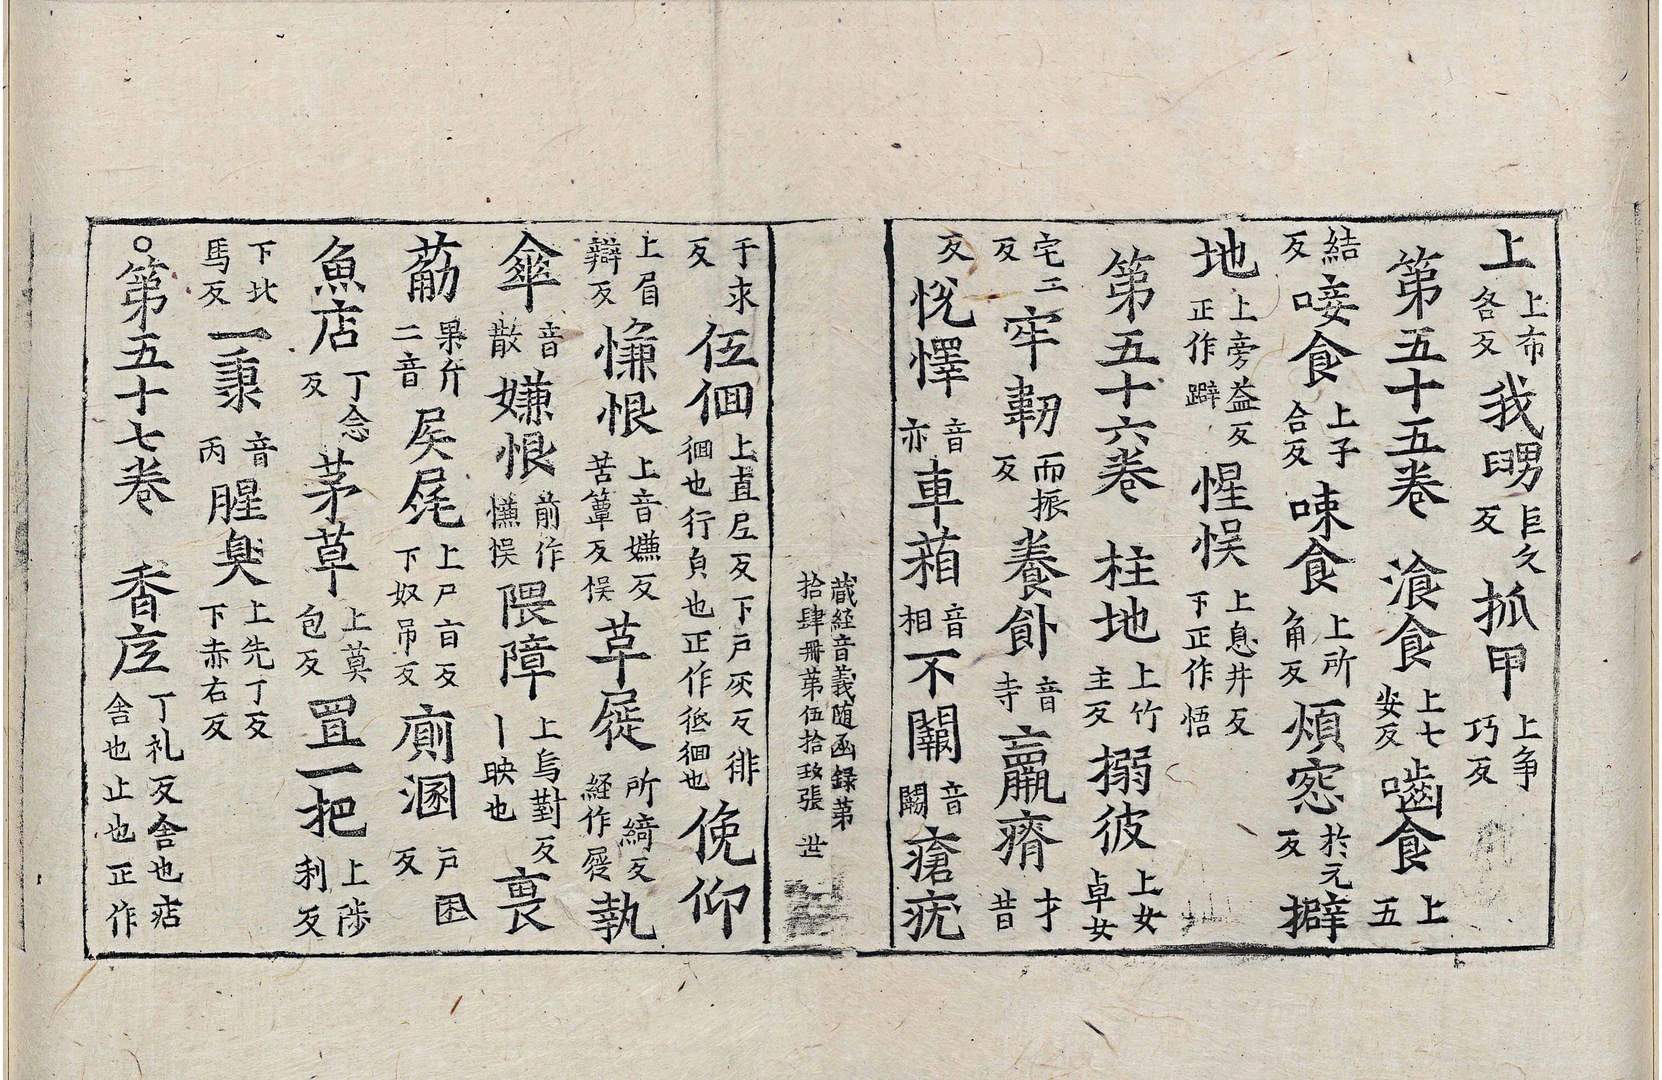 上 上布各反 我甥 巨久反 抓甲 上爭巧反
第五十五卷 湌食 上七安反 嚙食 上五
結反 唼食 上子合反 㖒食 上所角反 煩寃 於元反 擗
地 上旁益反正作躃 惺悮 上息井反下正作悟
第五十六卷 柱地 上竹主反 搦彼 上女卓女
宅二反 牢韌 而振反 養飤 音寺 羸瘠 才昔
反 悅懌 音亦 車葙 音相 不闠 音 瘡疣
藏経音義随函録第
拾肆冊第伍拾玫張 世
于求反 伍佪 上直尼反下戸灰反徘徊也行皃也正作彽徊也 俛仰
上眉辯反 慊恨 上音嫌反苦簟反悮 草屣 所綺反経作屣 執
傘 音散 嫌恨 前作慊悮 隈障 上烏對反丨映也 裹
葪 果斤二音 𡱁尾 上尸百反下奴吊反 廁溷 戸困反
魚店 丁念反 茅草 上莫包反 罝一把 上陟利反
下北馬反 一秉 音丙 腥臭 上先丁反下赤右反
○第五十七卷 香庢 丁礼反舎也痁舎也止也正作